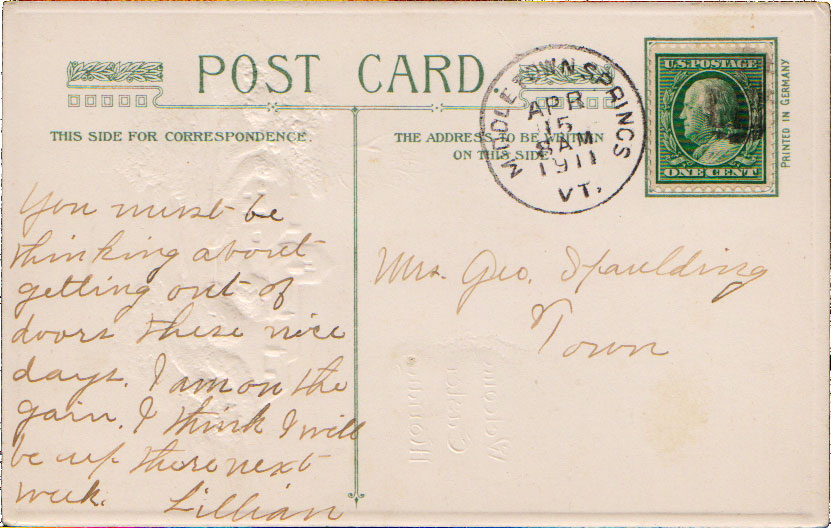 POST CARD
THIS SIDE FOR CORRESPONDENCE.
THE ADDRESS TO BE WRITTEN
ON THIS SIDE
MIDDLETOWN SPRINGS
APR
15
8 AM
1911
VT.
U.S. POSTAGE
ONE CENT
PRINTED IN GERMANY
You must be
thinking about
getting out of
doors these nice
days. I am on the
gain. I think I will
be up there next
week. Lillian
Mrs. Geo. Spaulding
Town